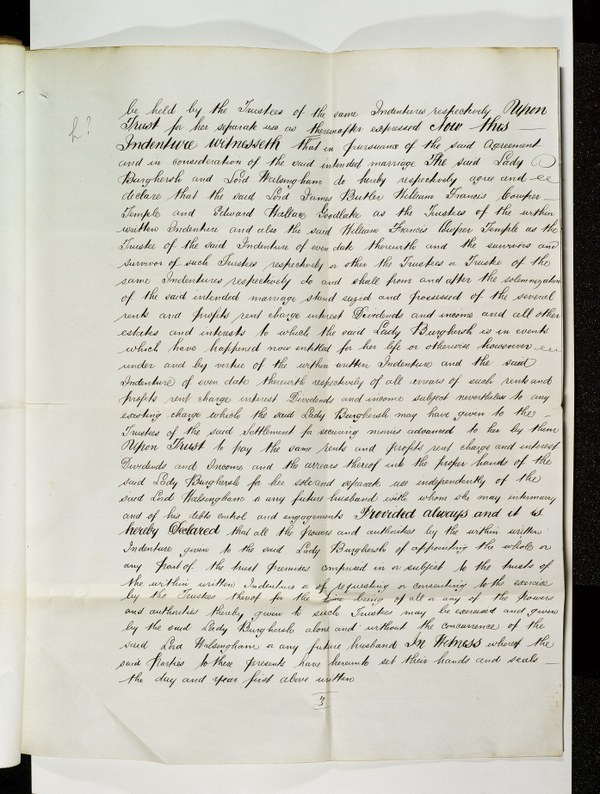 be held by the Trustees of the same Indentures respectively Upon
L?
Trust for her separate use as thereinafter expressed Now this
Indenture witnesseth that in pursuance of the said Agreement
and in consideration of the said intended marriage The said Lady
Burghersh and Lord Walsingham do hereby respectively agree and
declare that the said Lord James Butler William Francis Cowper
Temple and Edward Wallace Goodlake as the Trustees of the within
written Indenture and also the said William Francis Cowper Temple as the
Trustee of the said Indenture of even date therewith and the survivors and
survivor of such Trustees respectively or other the Trustees or Trustee of the
same Indentures respectively do and shall from and after the solemnization
of the said intended marriage stand seized and possessed of the several
rents and profits rent charge interest Dividends and income and all other
estates and interests to which the said Lady Burghersh is in events
which have happened now entitled for her life or otherwise howsoever
under and by virtue of the within written Indenture and the said
Indenture of even date therewith respectively of all arrears of such rents and
profits rent charge interest Dividends and income subject nevertheless to any
existing charge which the said Lady Burghersh may have given to the
Trustees of the said Settlement for securing monies advanced to her by them
Upon Trust to pay the same rents and profits rent charge and interest
Dividends and Income and the arrears thereof into the proper hands of the
said Lady Burghersh for her sole and separate use independently of the
said Lord Walsingham or any future husband with whom she may intermarry
and of his debts control and engagements Provided always and it is
hereby Declared that all the powers and authorities by the within written
Indenture given to the said Lady Burghersh of appointing the whole or
any part of the trust premises comprised in or subject to the trusts of
the within written Indenture or of requesting or consenting to the exercise
by the Trustees thereof for the time being of all or any of the powers
and authorities thereby given to such Trustees may be exercised and given
by the said Lady Burghersh alone and without the concurrence of the
said Lord Walsingham or any future husband In Witness whereof the
said parties to these presents have hereunto set their hands and seals
the day and year first above written
3